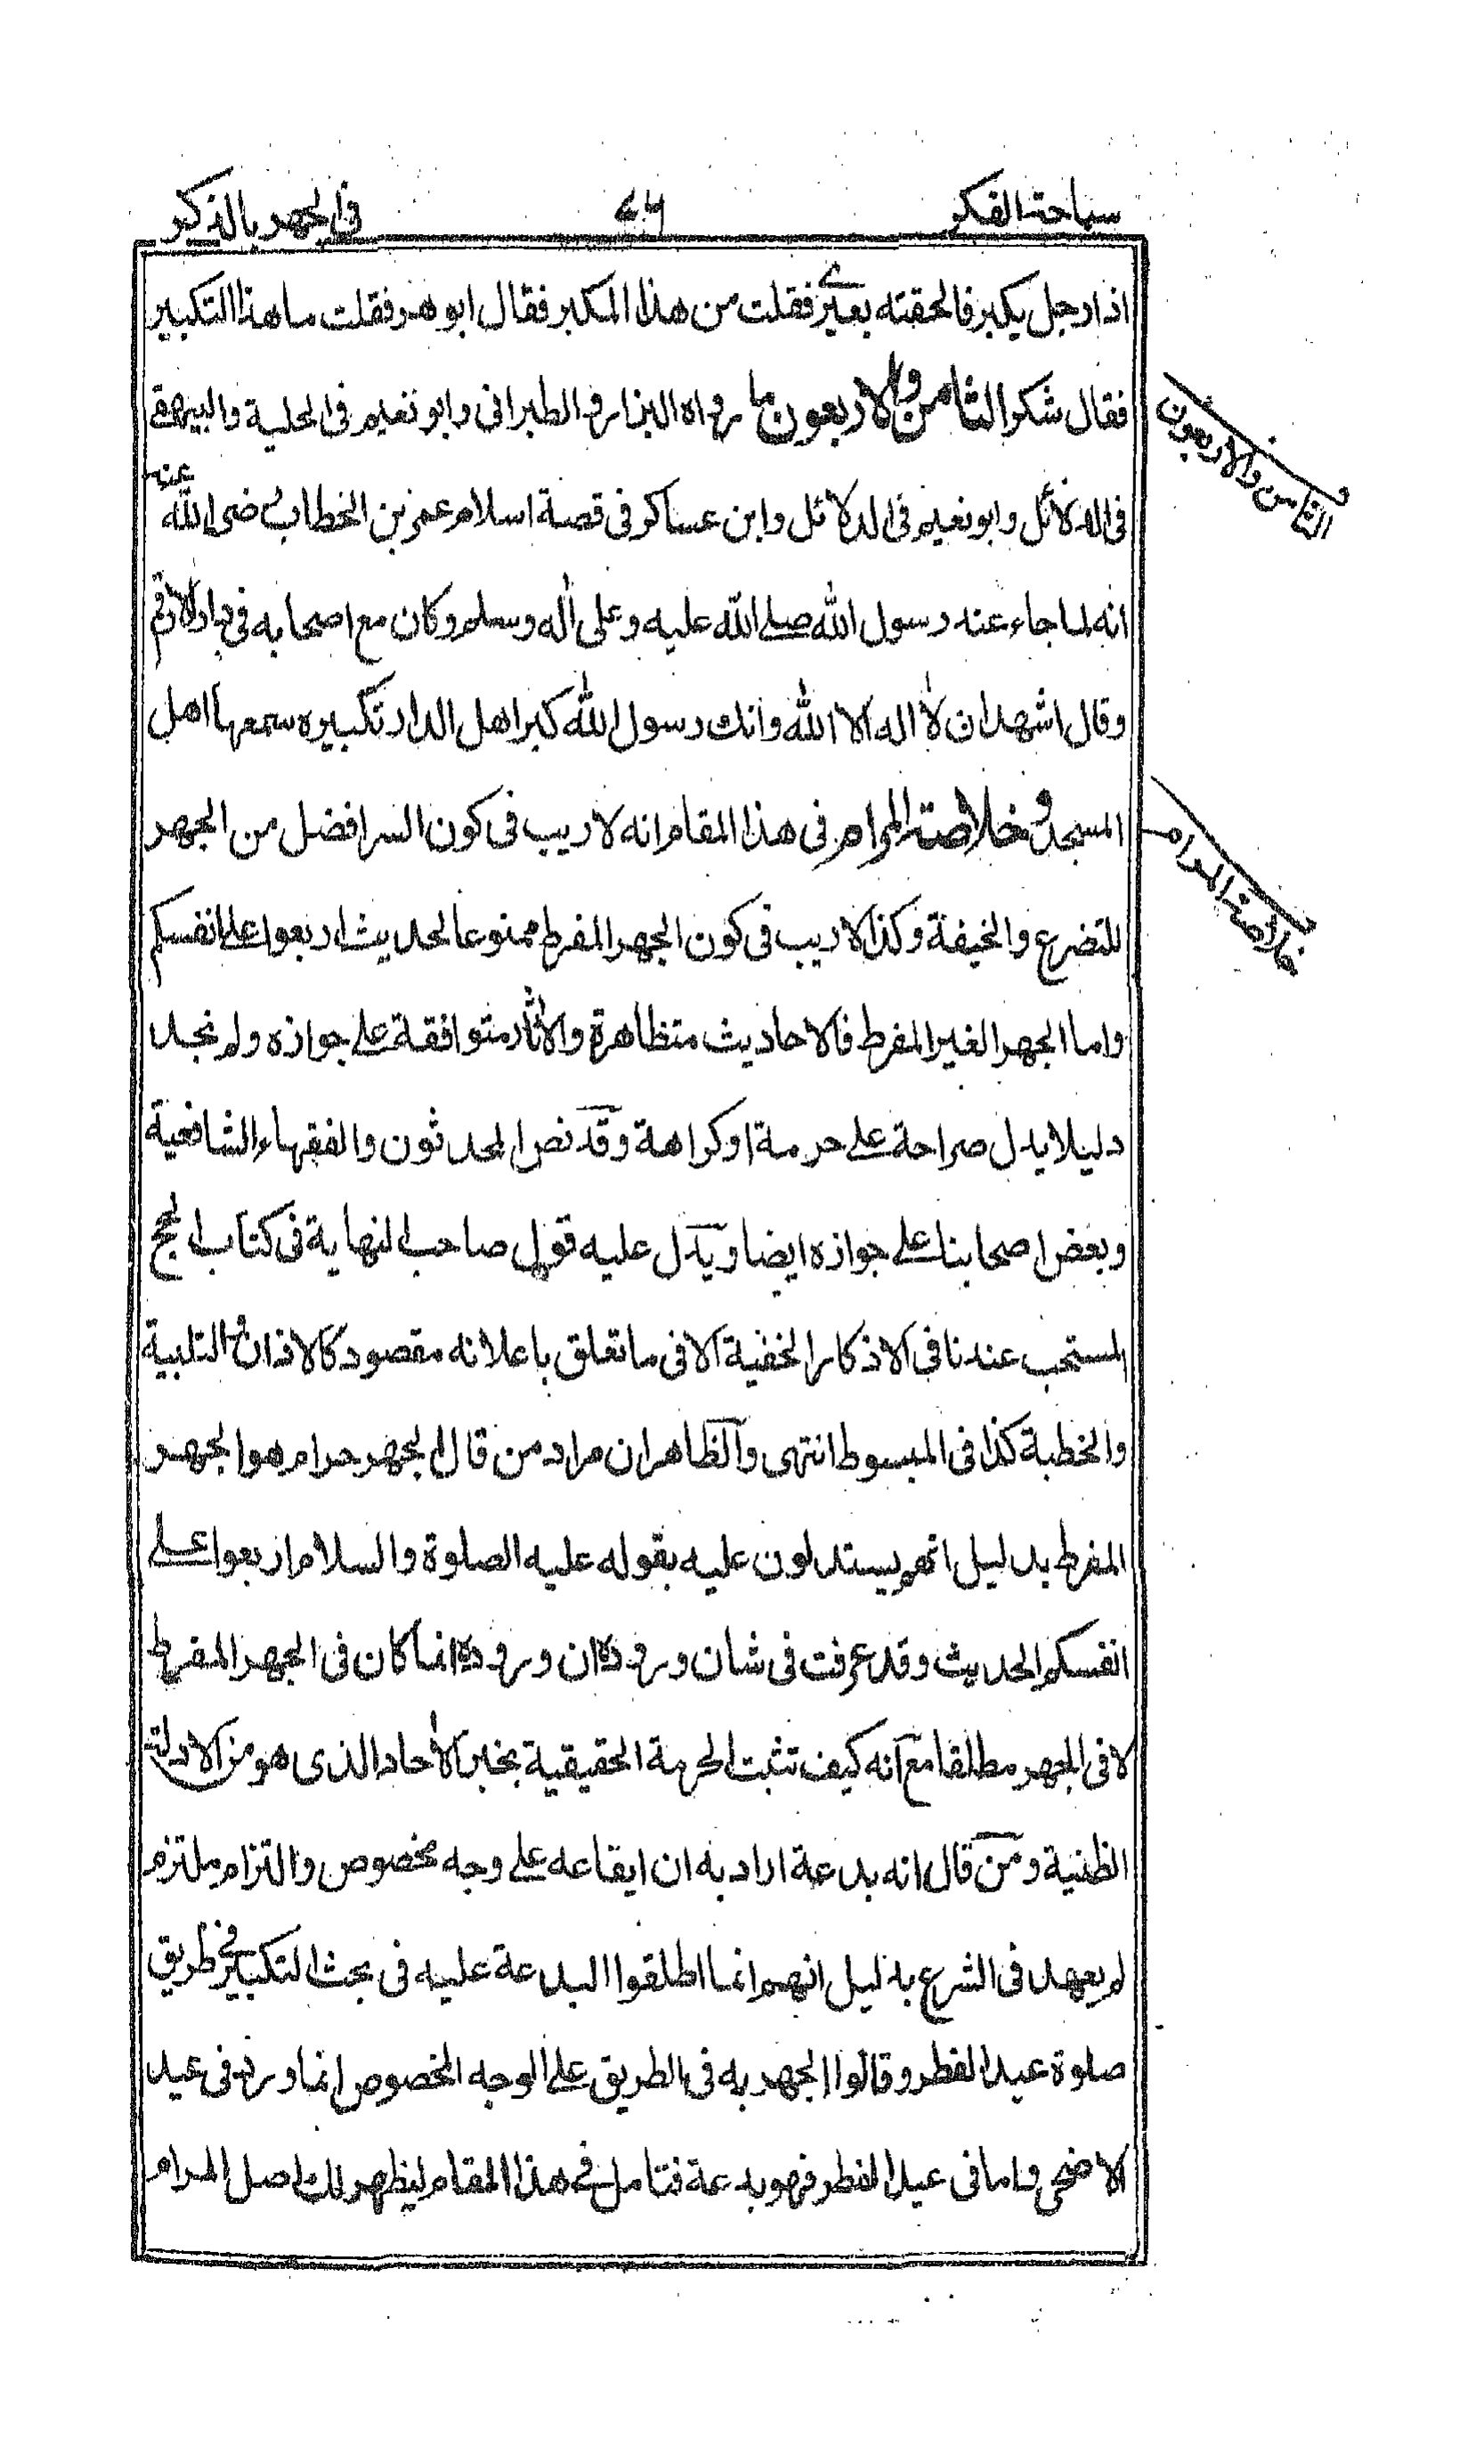 سباحة الفكر ٤٦ في الجهر بالذكر
اذا رجل يكبر فالحقته بعيري فقلت من هذا المكبر فقال ابو هر فقلت ما هذا التكبير
فقال شكرا الثامن والاربعون ما رواه البزار والطبراني وابو نعيم في الحلية والبيهقے
في الدلائل وابو نعيم في الدلائل وابن عساكر في قصة اسلام عمر بن الخطاب رضي الله عنه
انه لما جاء عند رسول الله صلے الله عليه وعلى أله وسلم وكان مع اصحابه في دار الارقم
وقال اشهد ان لا اله الا الله وانك رسول الله كبر اهل الدار تكبيره سمعها اهل
المسجد وخلاصة المرام في هذا المقام انه لا ريب في كون السر افضل من الجهر
للتضرع والخيفة وكذا لا ريب في كون الجهر المفرط ممنوعا لحديث اربعوا علے انفسكم
واما الجهر الغير المفرط فالاحاديث متظاهرة والأثار متوافقة علے جوازه ولم نجد
دليلا يدل صراحة علے حرمة او كراهة وقد نص المحدثون والفقهاء الشافعية
وبعض اصحابنا علے جوازه ايضا ويدل عليه قول صاحب النهاية في كتاب الحج
المستحب عندنا في الاذكار الخفية الا في ما تعلق باعلانه مقصود كالاذان والتلبية
والخطبة كذا في المبسوط انتهى والظاهر ان مراد من قال الجهر حرام هو الجهر
المفرط بدليل انهم يستدلون عليه بقوله عليه الصلوة والسلام اربعوا علے
انفسكم الحديث وقد عرفت في شان وروده ان وروده انما كان في الجهر المفرط
لا في الجهر مطلقا مع انه كيف تثبت الحرمة الحقيقية بخبر الأحاد الذي هو من الادلة
الظنية ومن قال انه بدعة اراد به ان ايقاعه علے وجه مخصوص والتزام ملتزم
لم يعهد في الشرع بدليل انهم انما اطلقوا البدعة عليه في بحث التكبير فے طريق
صلوة عيد الفطر وقالوا الجهر به في الطريق علے الوجه المخصوص انما ورد في عيد
الاضحى واما في عيد الفطر فهو بدعة فتامل فے هذا المقام ليظهر لك اصل المرام
الثامن والاربعون
خلاصة المرام